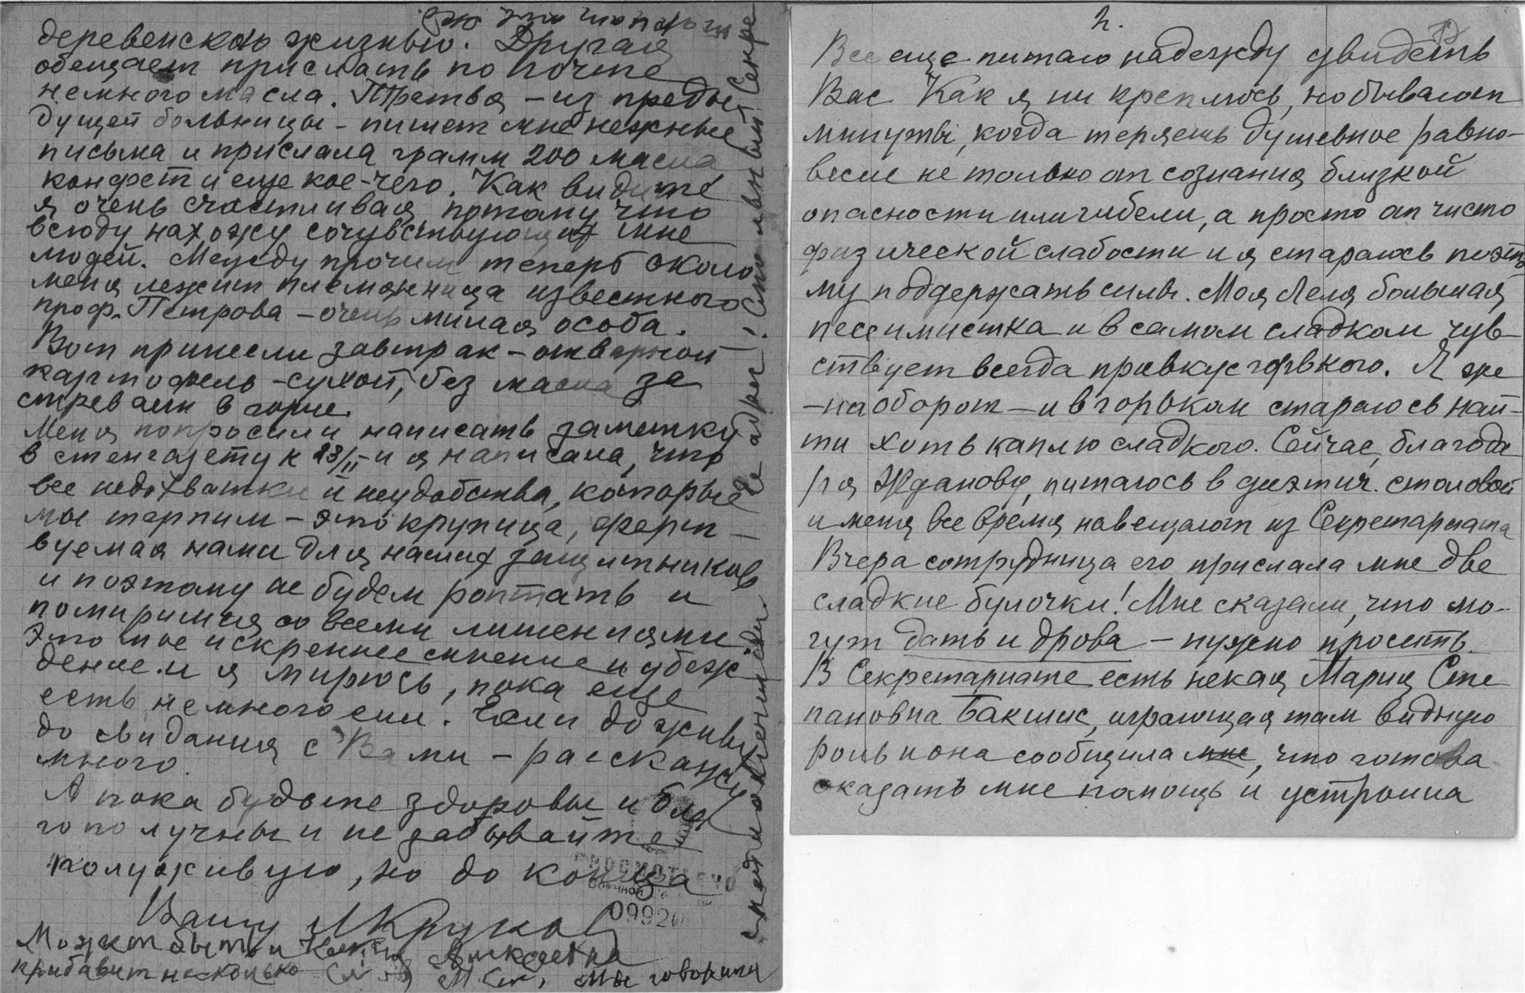 деревенскою жизнью. Другая
обещает прислать по почте
немного масла. Третья – из преды
дущей больницы – пишет мне нежные
письма и прислала грамм 200 масла
конфет и еще кое-чего. Как видите
я очень счастливая, потому что
всюду нахожу сочувствующих мне
людей. Между прочим теперь около
меня лежит племянница известного
проф. Петрова – очень милая особа.
Вот принесли завтрак – отварной
картофель – сухой, без масла за
стревает в горле.
Меня попросили написать заметку
в стенгазету к 23/II – и я написала, что
все недохватки и неудобства, которые
мы терпим – это крупица, жерт–
вуемая нами для наших защитников
и поэтому не будем роптать и
помиримся со всеми лишениями
Это мое искреннее мнение и убеж
дение и я мирюсь, пока еще
есть немного сил. Если доживу
до свидания с Вами – расскажу
много.
А пока будьте здоровы и бла
гополучны и не забывайте
полуживую, но до конца
Вашу
Может быть и
прибавит несколько
мы говорили
ПРОСМОТРЕНО
Военной
2.
Все еще питаю надежду увидеть
Вас Как я ни креплюсь, но бывают
минуты, когда теряешь душевное равно–
весие не только от сознания близкой
опасности или гибели, а просто от чисто
физической слабости и я стараюсь поэто
му поддержать силы. Моя Леля большая
пессимистка и в самом сладком чув–
ствует всегда привкус горького. Я же
– наоборот – и в горьком стараюсь най–
ти хоть каплю сладкого. Сейчас, благода
ря Жданову, питаюсь в диэтич. столовой
и меня все время навещают из Секретариата
Вчера сотрудница его прислала мне две
сладкие булочки! Мне сказали, что мо–
гут дать и дрова – нужно просить.
В Секретариате есть некая Мария Сте
пановна Бакшис, играющая там видную
роль и она сообщила мне, что готова
оказать мне помощь и устроила